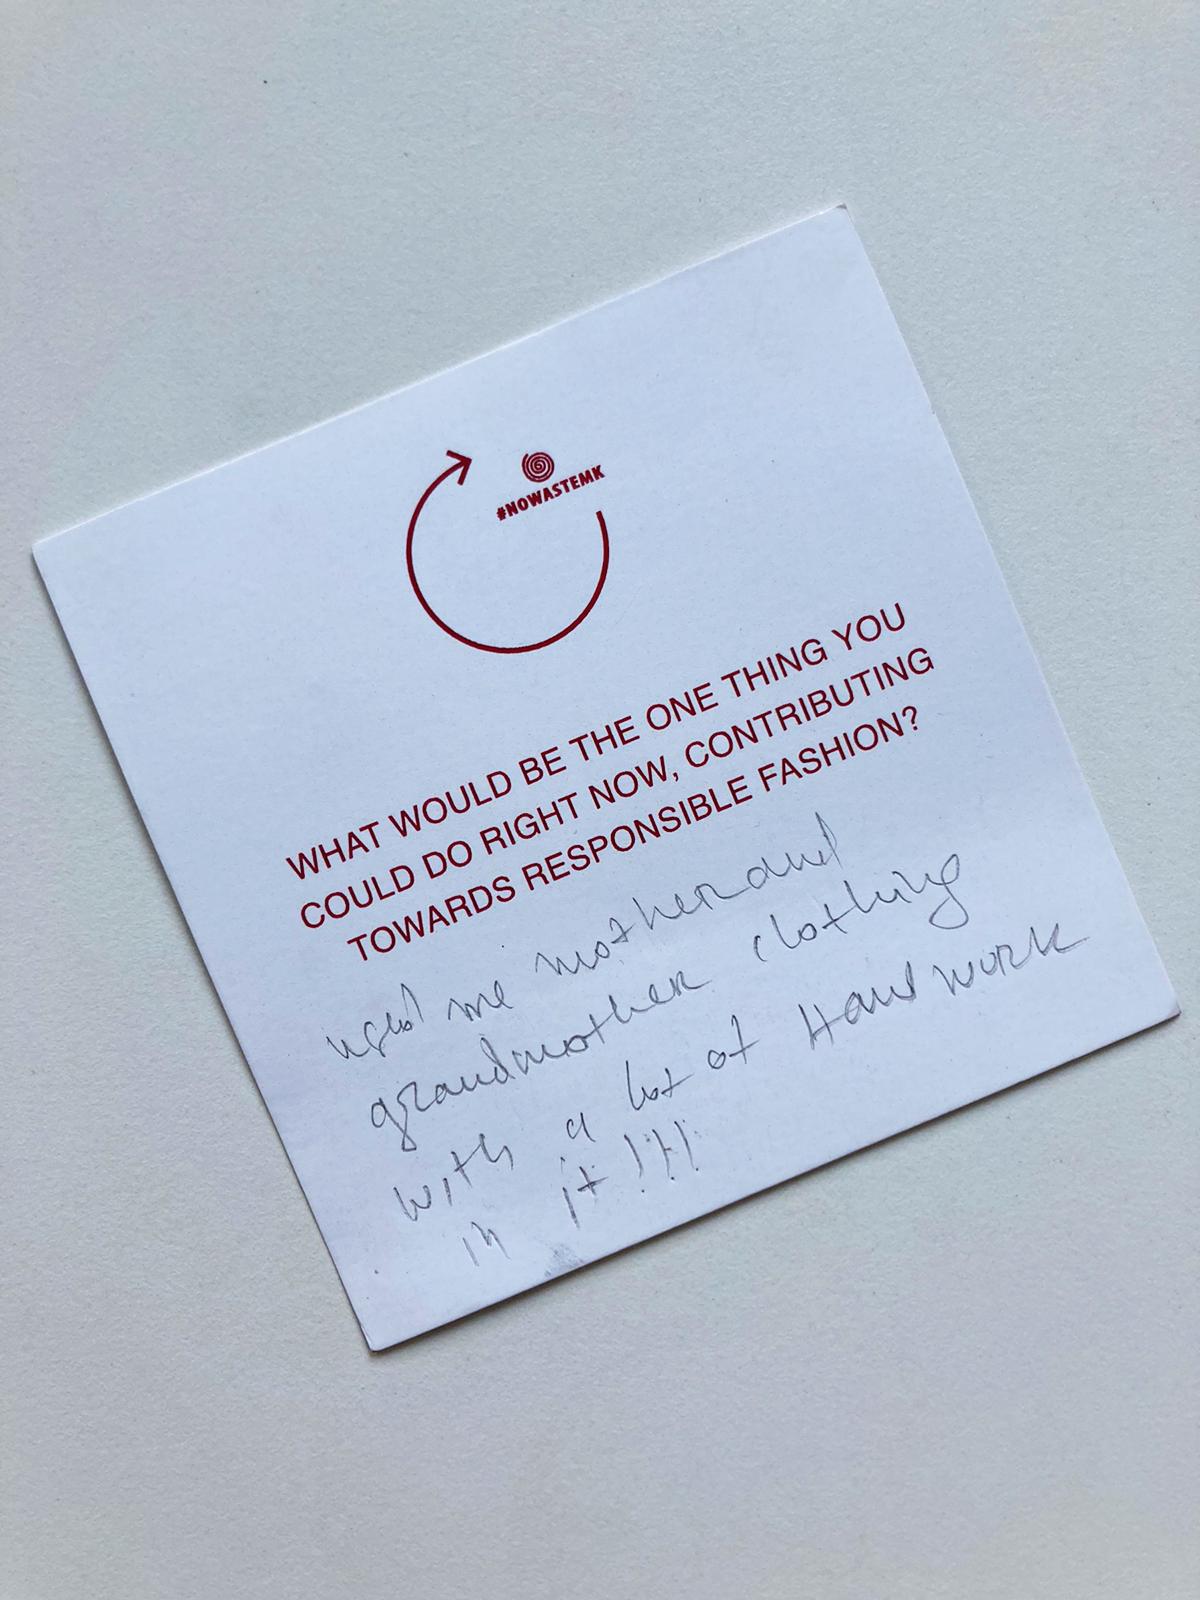 #NOWASTEMK
WHAT WOULD BE THE ONE THING YOU
COULD DO RIGHT NOW, CONTRIBUTING
TOWARDS RESPONSIBLE FASHION?
me mother and
grandmother clothing
with a lot of Hand work
in it!!!!